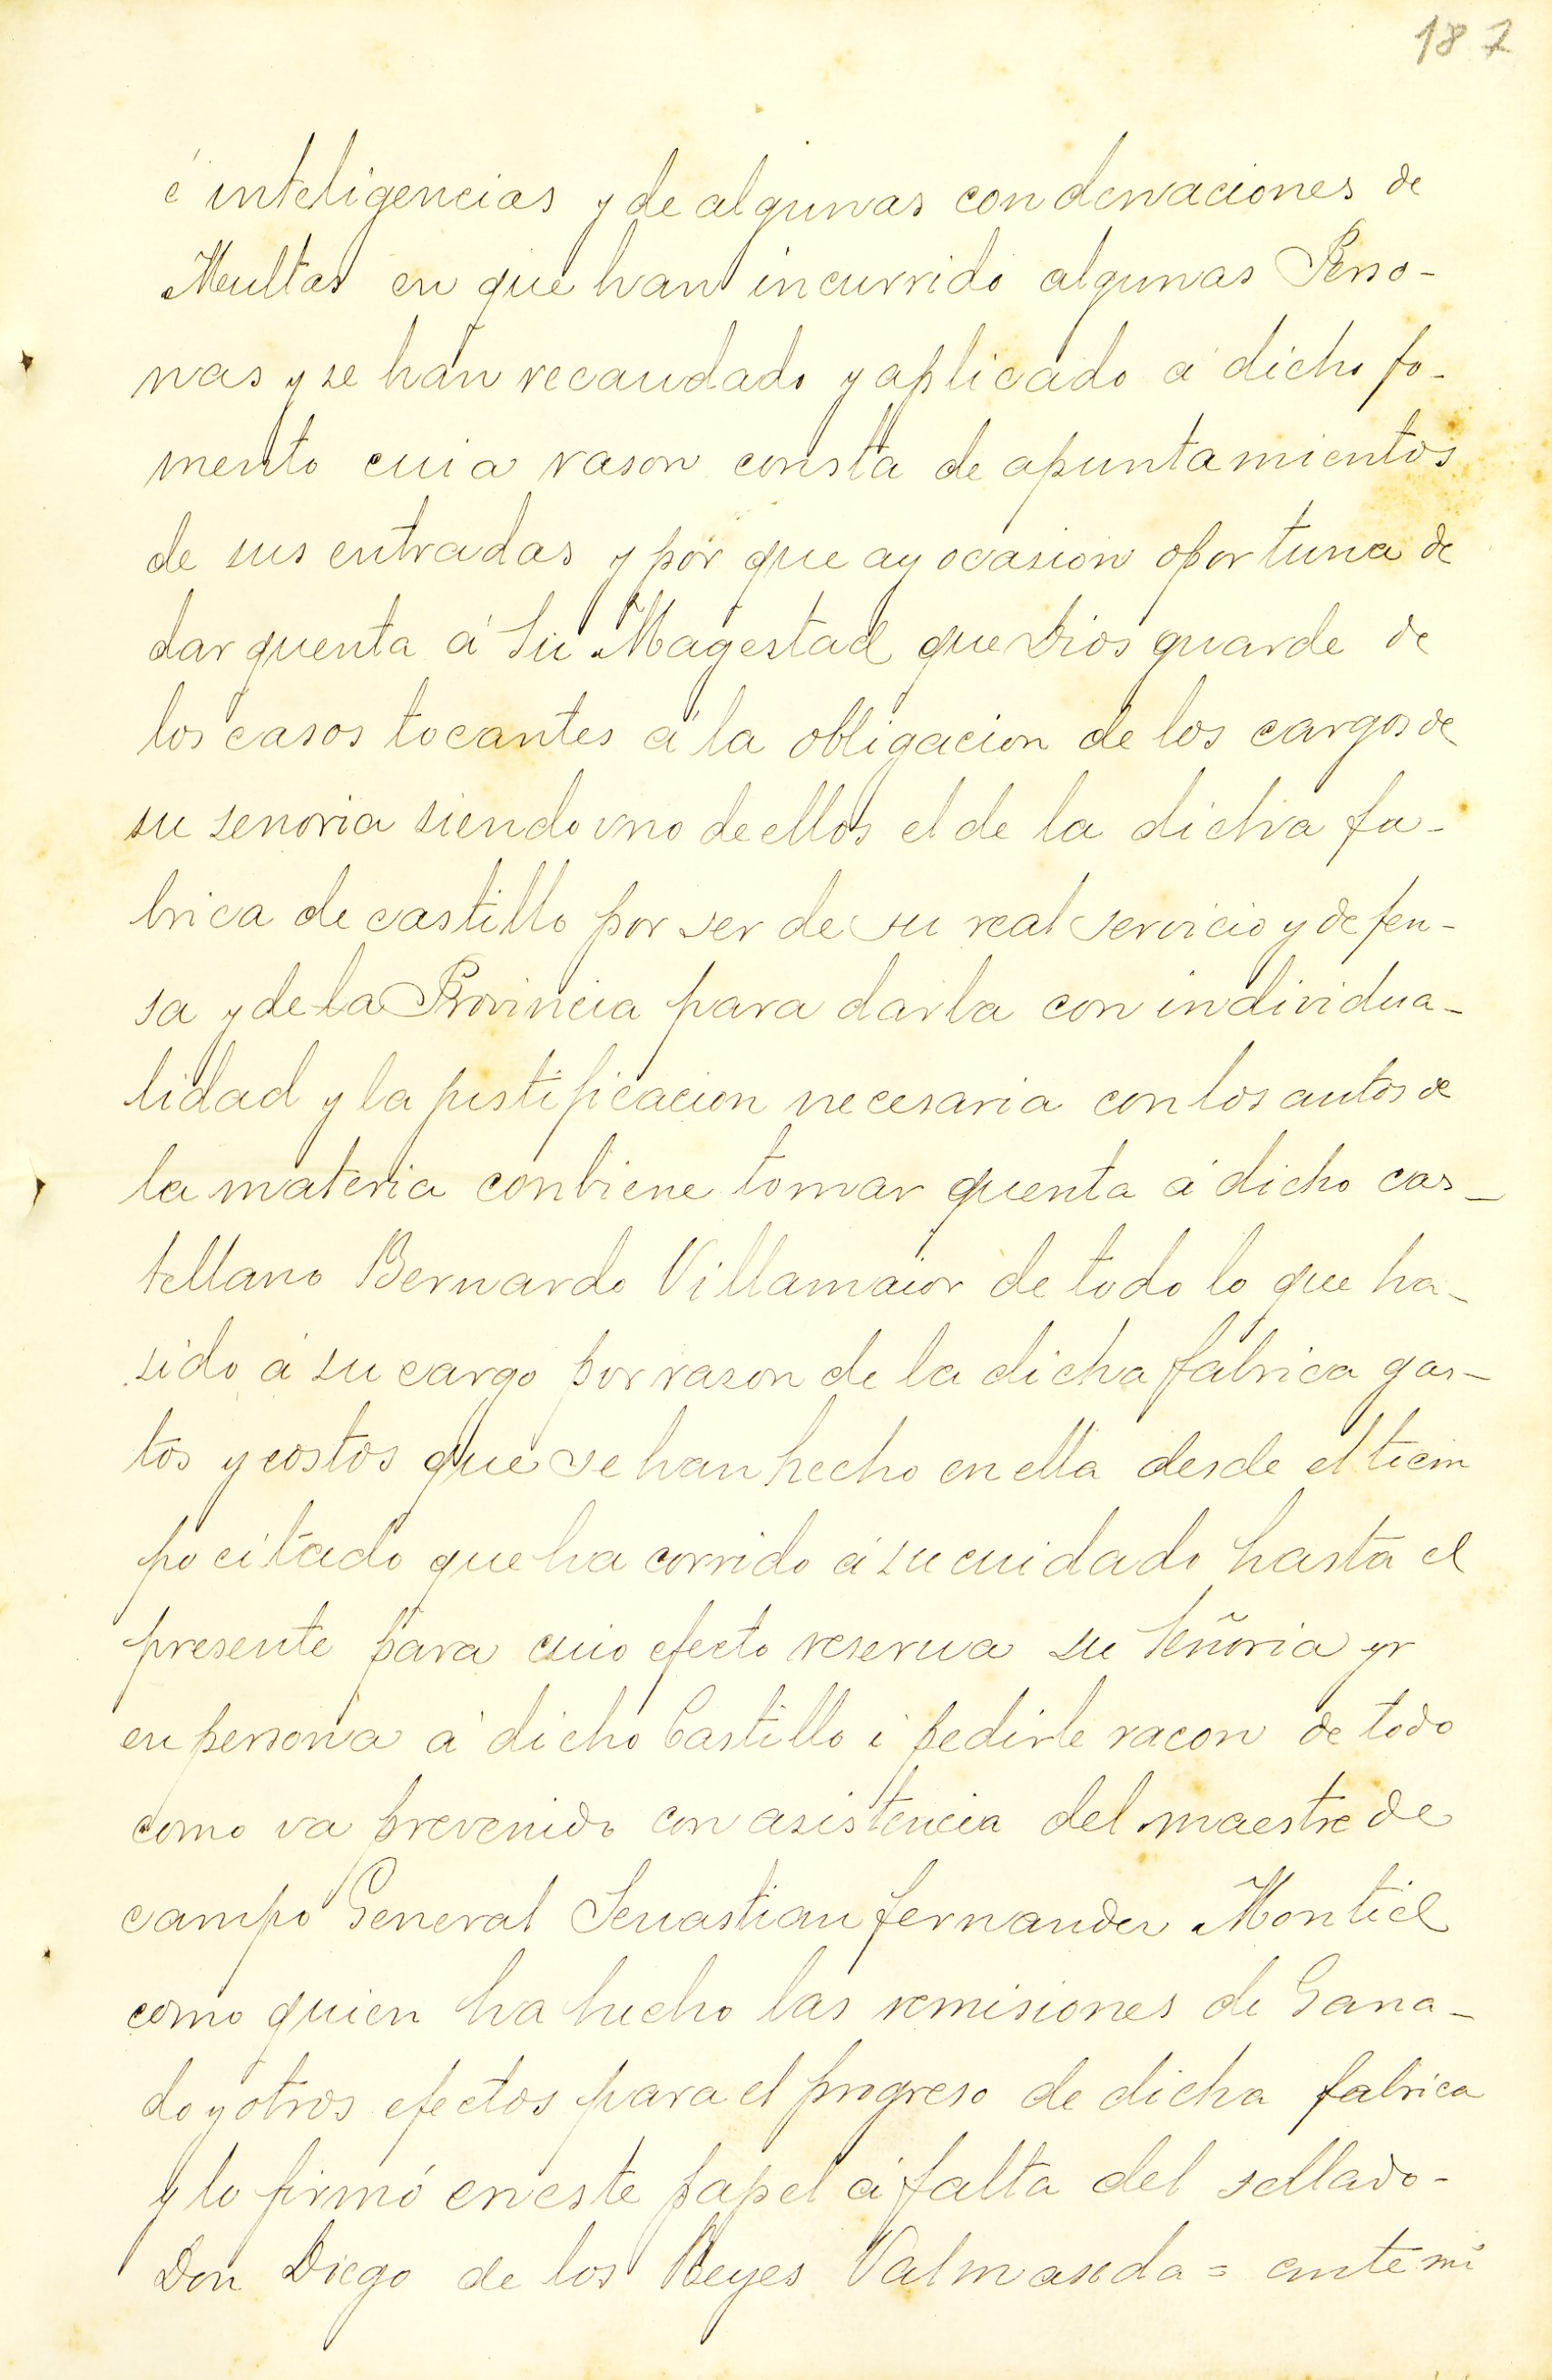 187
é inteligencias y de algunas condenaciones de
Multas en que han incurrido algunas Perso-
nas y se han recaudado y aplicado á dicho fo-
mento cuia rason consta de apuntamientos
de sus entradas y por que ay ocasion oportuna de
dar quenta á Su Magestad que Dios guarde de
los casos tocantes á la obligacion de los cargos de
su senoria siendo vno de ellos el de la dicha fa-
brica de castillo por ser de su real servicio y defen-
sa y de la Provincia para darla con individua-
lidad y la justificacion necesaria con los autos de
la materia conbiene tomar quenta á dicho cas-
tellano Bernardo Villamaior de todo lo que ha-
sido á su cargo por rason de la dicha fabrica gas-
tos y costos que se han hecho en ella desde el tiem
po citado que ha corrido á su cuidado hasta el
presente para cuio efecto reserua su Señoria yr
en persona á dicho Castillo i pedirle racon de todo
como va prevenido con asistencia del maestre de
campo General Seuastian fernander Montiel
como quien ha hecho las remisiones de Gana-
do y otros efectos para el progreso de dicha fabrica
y lo firmó en este papel á falta del sellado-
Don Diego de los Reyes Valmaseda = ante mi